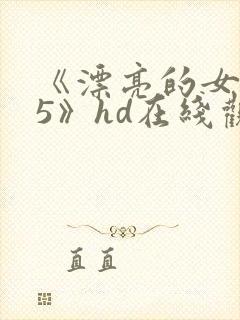 《漂亮的女
5》hd在綫觀
直直